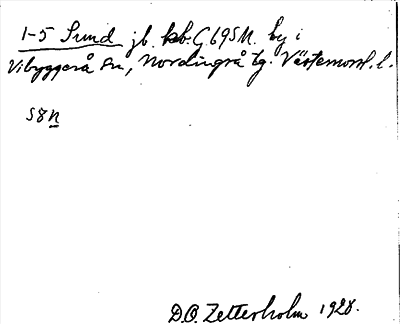 1-5 Sund jb. kb. G.69SM. by i
Vibyggerå sn, Nordingrå tg. Västernorrl. l.
S8n
D.O. Zetterholm 1928.